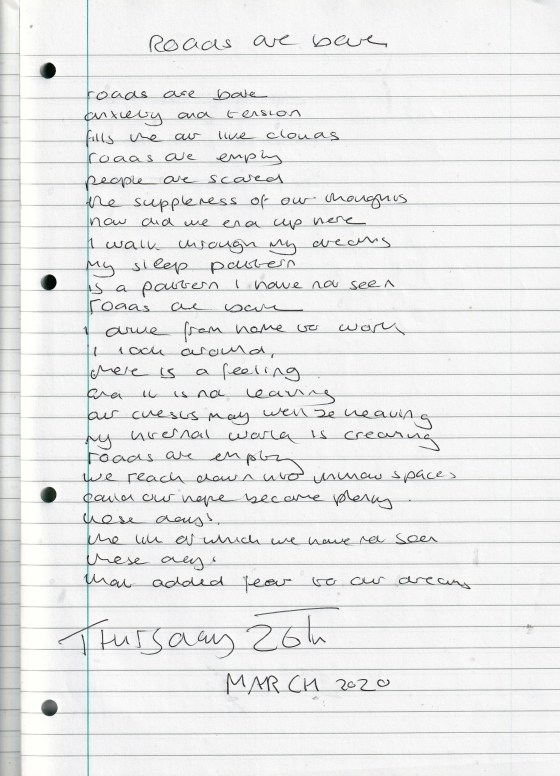 Roads are bare
roads are bare
anxiety and tension
fills the air like clouds
roads are empty
people are scared
the suppleness of our thoughts
how did we end up here
I walk through my dreams
my sleep pattern
is a pattern I have not seen
roads are bare
I drive from home to work
I look around,
there is a feeling
and it is not leaving
our chests may well be heaving
my internal world is creaking
roads are empty
we reach down into spaces
could our hope become plenty.
these days.
the like of which we have not seen
these days.
that added fear to our dreams
Thursday 26th
MARCH 2020